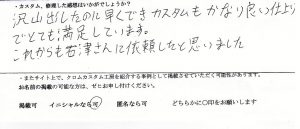 ・カスタム、修理した感想はいかがでしょうか？
沢山出したのに早くできカスタムもかなり良い仕上り
でとても満足しています。
これからも若津さんに依頼したと思いました
・またサイト上で、クロムカスタム工房を紹介する事例として掲載させていただく可能性があります。
お名前の掲載の可能な方は、ぜひお申し付けください。
掲載可　イニシャルなら可　匿名なら可　どちらかに○印をお願いします